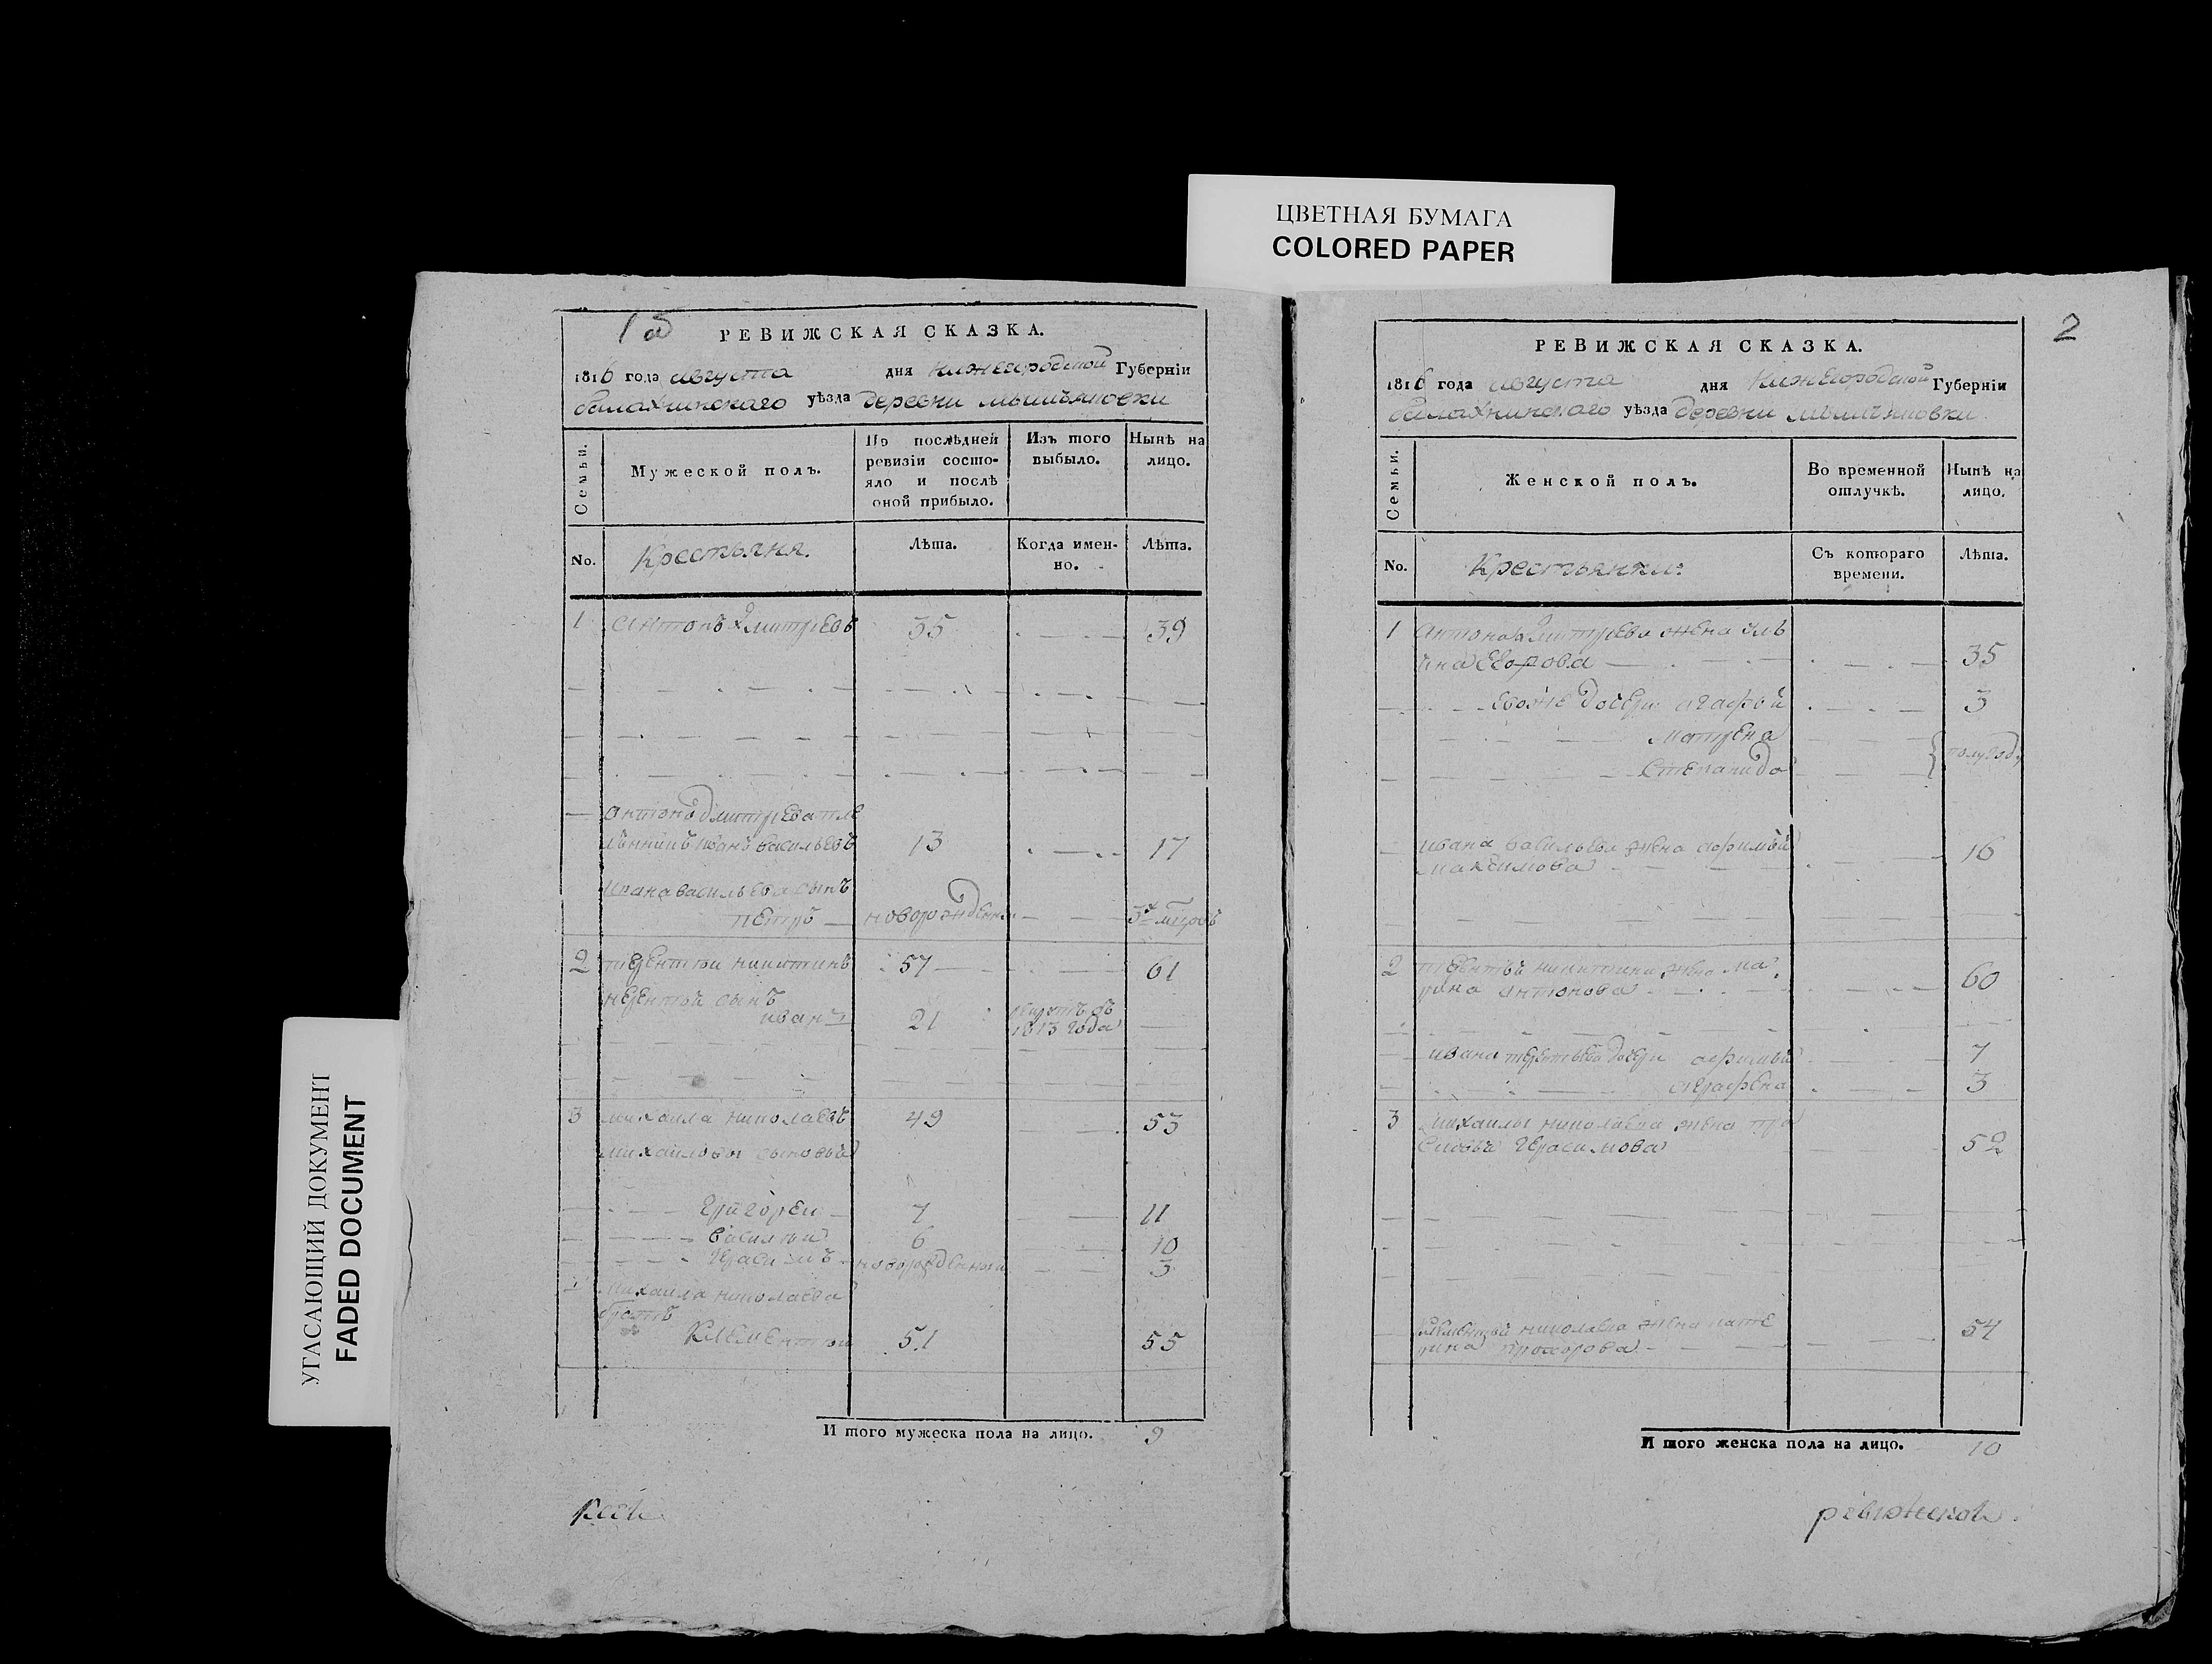 ЦВЕТНАЯ БУМАГА
COLORED PAPER
УГАСАЮЩИЙ ДОКУМЕНТ
FADED DOCUMENT
15
РЕВИЖСКАЯ СКАЗКА.
1816 года августа дня нижегородской Губерніи
балахнинскаго уѣзда деревни
Семьи.
Мужеской полъ.
По послѣдней ревизіи состо-
яло и послѣ
оной прибыло.
Изъ того
выбыло.
Нынѣ на
лицо.
No.
Крестьяня.
Лѣта.
Когда имен-
но.
Лѣта.
1 Антонъ Дмитріевъ 35 39
Антона Дмитріева пле
мѣнникъ Иванъ васильевъ 13 17
Ивана васильева сынъ
петръ новорожденны 3х мцовъ
2 терентеи никитинъ 57 61
сынъ
иванъ 21 1813 года
3 михаила николаевъ 49 53
михаиловы сыновья
Григореи 7 11
василеи 6 10
Герасимъ новорожденнои 3
михаила николаева
братъ
Климентеи 51 55
И того мужеска пола на лицо. 9
2
РЕВИЖСКАЯ СКАЗКА.
1816 года августа дня нижегородской Губерніи
балахнинскаго уѣзда деревни
Семьи.
Женской полъ.
Во временной
отлучкѣ.
Нынѣ на
лицо.
No.
Крестьянки:
Съ котораго
времени.
Лѣта.
1 Антона Дмитріева жена уль
яна Егорова 35
Евоже дочери агафья 3
матрена
Степанида полугода
ивана васильева жена афимья
максимова 16
2 терентья никитина жена ма
рина антонова 60
ивана терентьева дочери афимья 7
аграфена 3
3 михаилы николаева жена пра
сковья Герасимова 52
климентья николаева жена кате
рина прохорова 54
И того женска пола на лицо. 10
ревижской